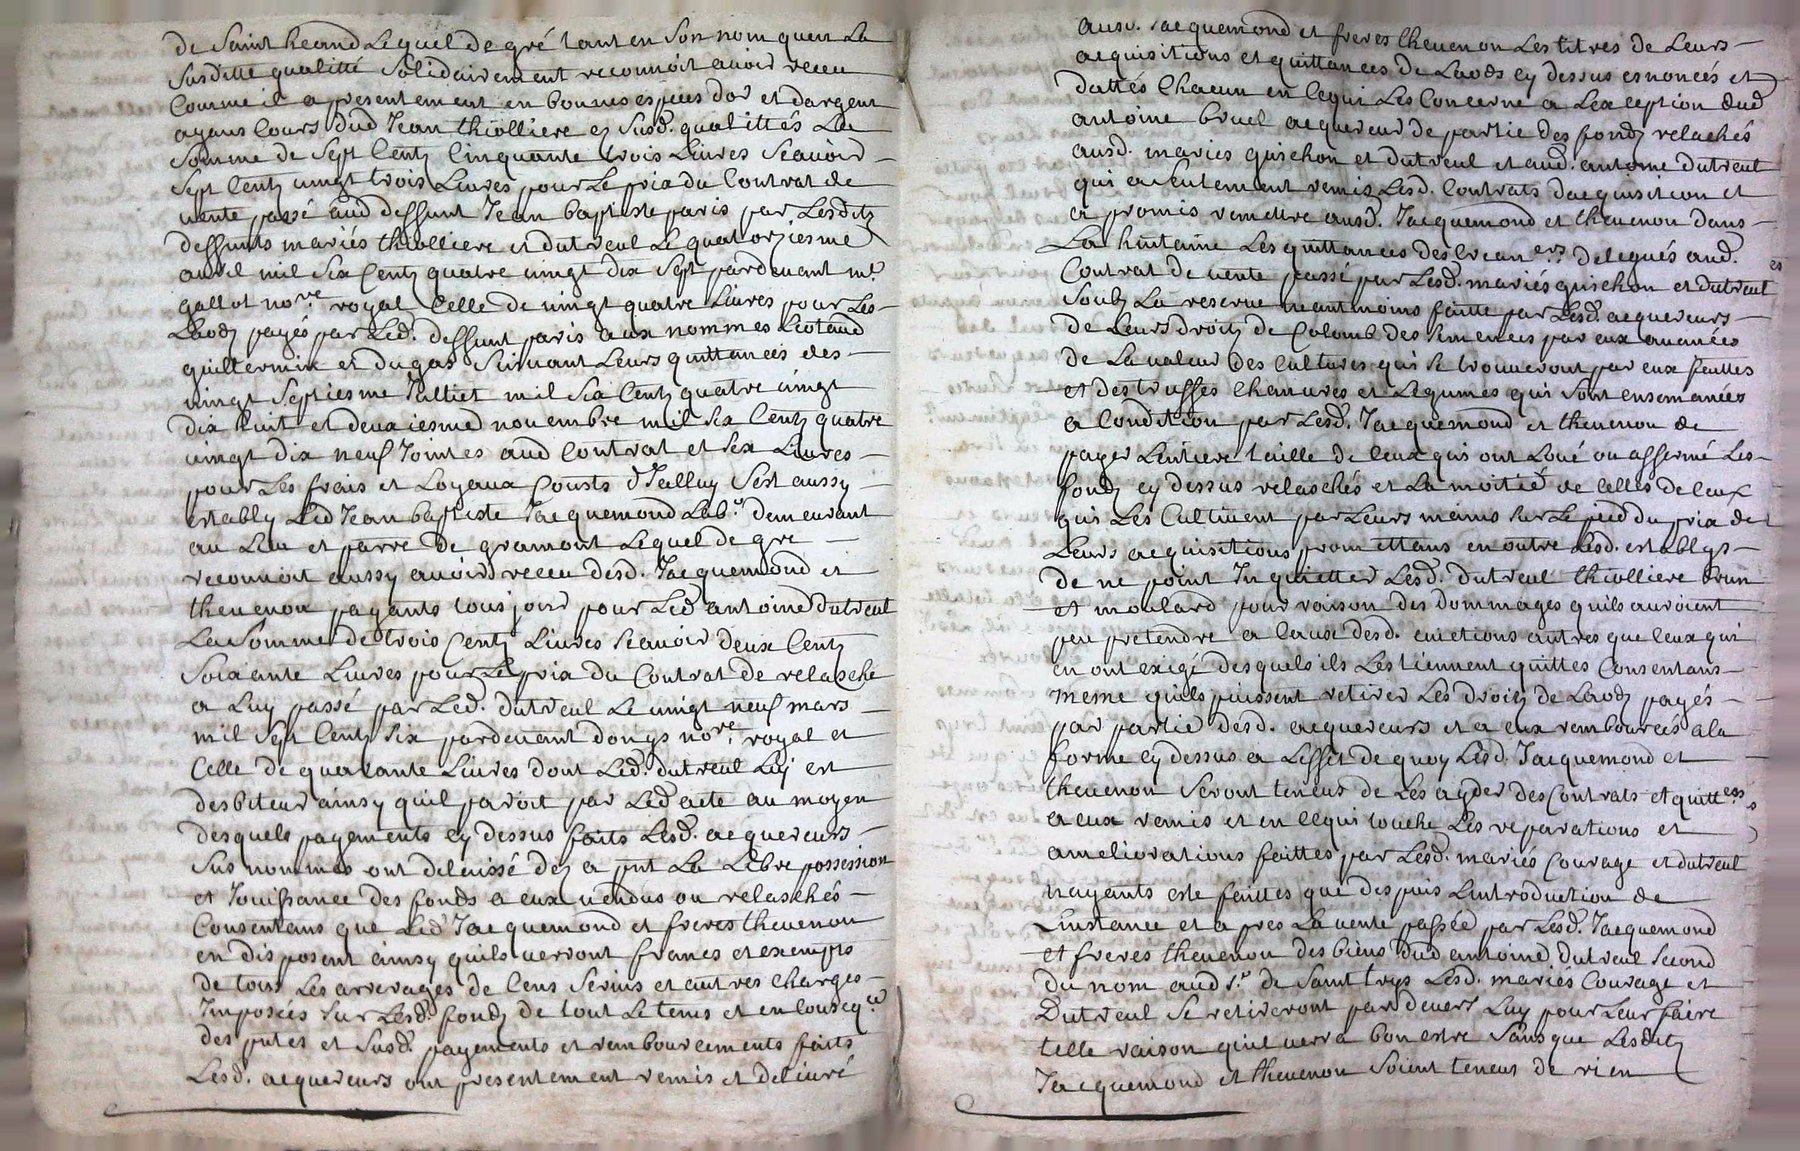 de Saint heand Lequel de gré tant en Son nom quen La
Susditte qualitté Solidairement reconnoit avoir receu
Comme il a presentement en bonnes especes dor et dargent
ayans Cours dud Jean thiolliere es Susd. qualittés La
Somme de Sept Centz Cinquante trois Livres Scavoir
Sept Centz vingt trois Livres pour Le prix du Contrat de
vente passé aud deffunt Jean baptiste paris par Lesditz
deffunts mariés thiolliere et dutreul Le quatorziesme
avril mil Six Centz quatre vingt dix Sept pardevant me
gallot nore royal Celle de vingt quatre Livres pour Les
Laodz payés par Led. deffunt paris aux nommes Liotaud
guillermin et dugas Suivant Leurs quittances des
vingt Septiesme Juilliet mil Six Centz quatre vingt
dix huit et deuxiesme novembre mil Six Centz quatre
vingt dix neuf Jointes aud Contrat et Six Livres
pour Les frais et Loyaux Cousts dJcelluy Sest aussy
establly Led Jean baptiste Jacquemond Labr. demeurant
au Lieu et parre de gramont Lequel de gre
reconnoit aussy avoir receu desd. Jacquemond et
thevenon payants tousjours pour Led antoine dutreul
La Somme de trois Centz Livres Scavoir deux Centz
Soixante Livres pour Le prix du Contrat de relasche
a Luy passé par Led. dutreul Le vingt neuf mars
mil Sept Centz Six pardevant dongs nore. royal et
Celle de quarante Livres dont Led. dutreul Luy est
desbiteur ainsy quil paroit par Led acte au moyen
desquels payements cy dessus faits Lesd. acquereurs
Sus nommes ont delaissé dez a pnt La Libre possession
et Jouissance des fonds a eux vendus ou relaschés
Consentans que Led Jacquemond et freres thevenon
en disposent ainsy quils verront francs et exempts
de tous Les arrerages de Cens Servis et autres charges
Jmposées Sur Lesd. fondz de tout Le tems et en Conseqce
des putes et Susd. payements et rembourcements faits
Lesd. acquereurs ont presentement remis et delivré
ausd. Jacquemond et freres thevenon Les titres de Leurs
acquisitions et quittances de Laods cy dessus esnoncés et
dattés Chacun en Cequi Les Concerne a Lexception dud
antoine bruel acquereur de partie des fondz relachés
ausd. mariés guichon et dutreul et aud. antoine dutreul
qui a Seulement remis Lesd. Contrats dacquisition et
a promis remettre ausd. Jacquemond et thevenon dans
La huitaine Les quittances des Creaners delegués aud.
Contrat de vente passé par Lesd. mariés guichon et dutreul
Soubz La reserve neantmoins faitte par Lesd. acquereurs
de Leurs droitz de Colomb des Semences par eux avancées
de La valeur des Cultures qui Se trouveront par eux faittes
et des truffes Chanvres et Legumes qui Sont ensemancés
a Condition par Lesd. Jacquemond et thevenon de
payer Lentiere taille de Ceux qui ont Loué ou affermé Les
fondz cy dessus relaschés et La moitié de Celles de Ceux
qui Les Cultivent par Leurs mains Sur Le pied du prix de
Leurs acquisitions promettans en outre Lesd. establys
de ne point Jnquietter Lesd. dutreul thiolliere brun
et moulard pour raison des dommages quils auroient
peu pretendre a Cause desd. evictions autres que Ceux qui
en ont exigé desquels ils Les tiennent quittes Consentans
meme quils puissent retirer Les droitz de Laodz payés
par partie desd. acquereurs et a eux remboursés a la
forme cy dessus a Leffet de quoy Lesd. Jacquemond et
thevenon Seront teneus de Les ayder des Contrats et quittces
a eux remis et en Cequi touche Les reparations et
ameliorations faittes par Lesd. mariés Courage et dutreul
nayants esté faittes que despuis Lintroduction de
Linstance et apres La vente passée par Lesd. Jacquemond
et freres thevenon des biens dud antoine dutreul Second
du nom aud Sr. de Saint trys Lesd. mariés Courage et
Dutreul Se retireront pardevers Luy pour Leur faire
telle raison quil verra bon estre Sans que Lesditz
Jacquemond et thevenon Soient teneus de rien